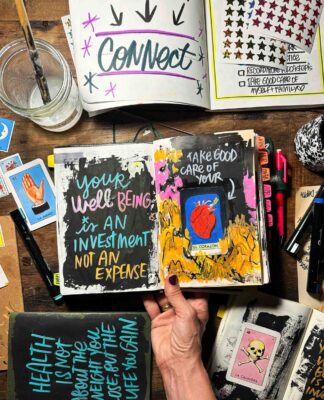 CONNECT
TAKE CARE OF
YOUR
WELL BEING
IS AN
INVESTMENT
NOT AN
EXPENSE
TAKE GOOD
CARE OF
YOUR
EL CORAZON
HEALTH
IS NOT
ABOUT THE
WEIGHT YOU
LOSE, BUT THE
LIFE YOU GAIN
LA CALAVERA